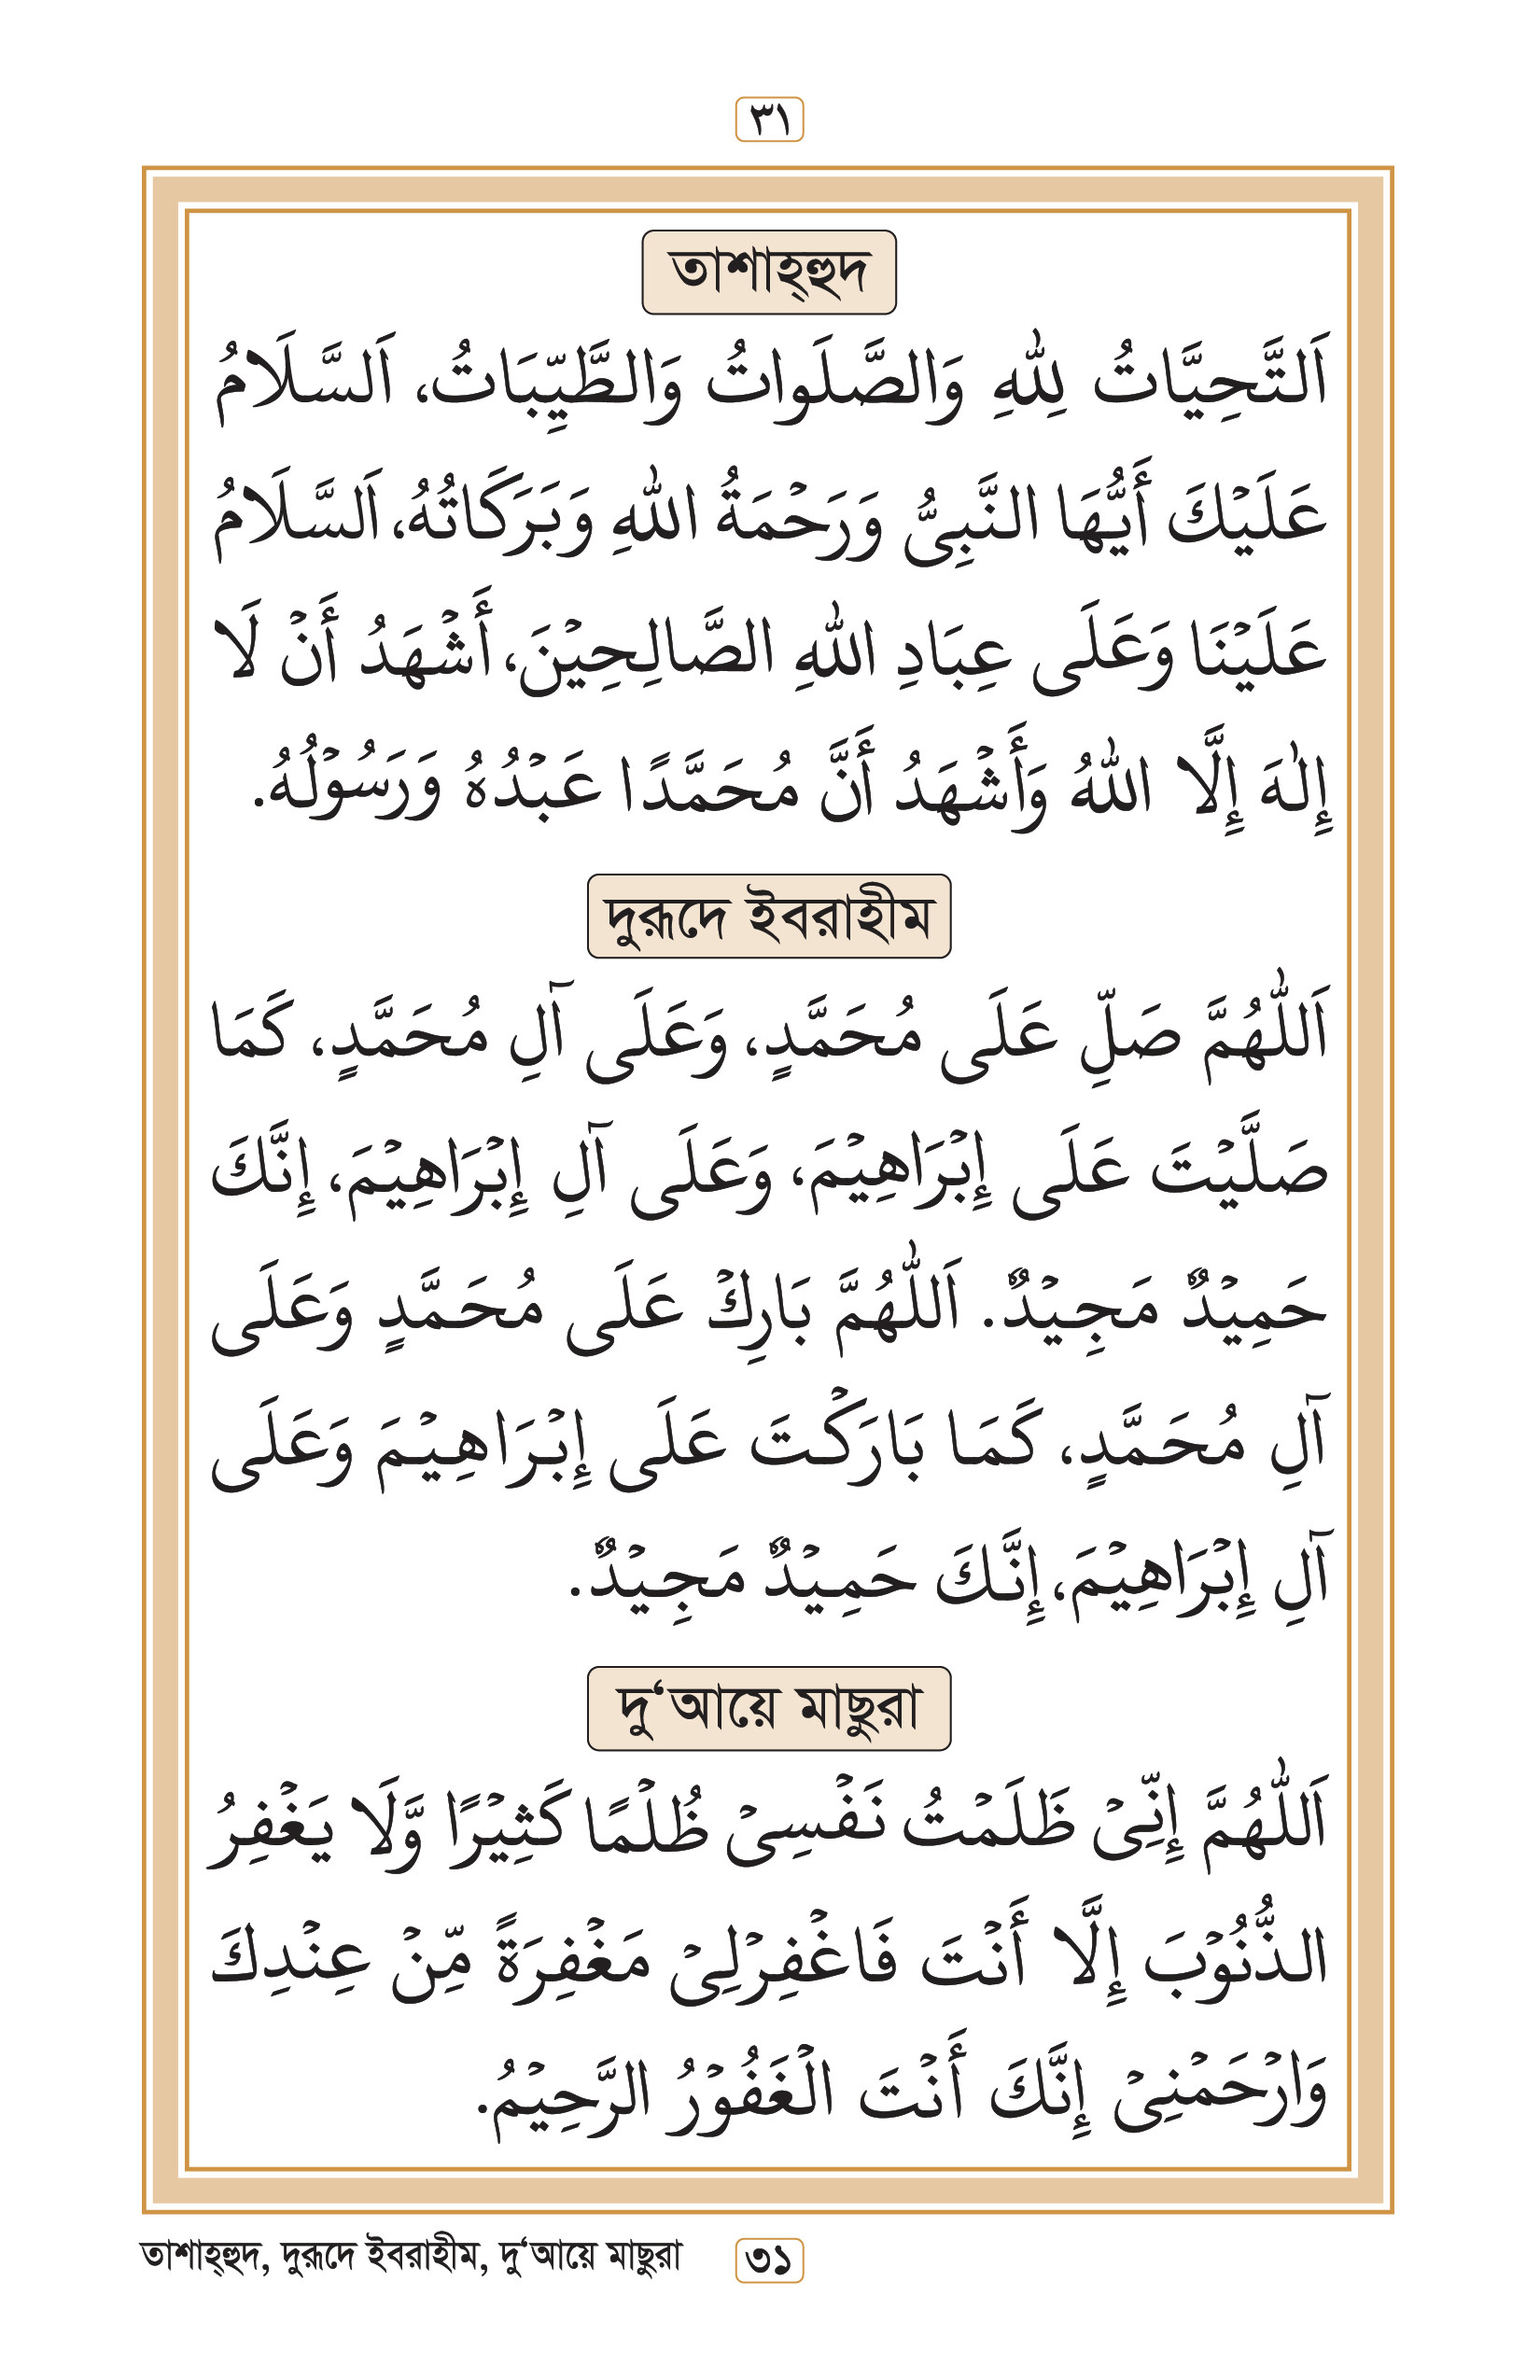 ٣١
তাশাহ্হুদ
اَلتَّحِيَّاتُ لِلّٰهِ وَالصَّلَواتُ وَالطَّيِّبَاتُ، اَلسَّلَامُ
عَلَيْكَ أَيُّهَا النَّبِيُّ وَرَحْمَةُ اللّٰهِ وَبَرَكَاتُهُ، اَلسَّلَامُ
عَلَيْنَا وَعَلَى عِبَادِ اللّٰهِ الصَّالِحِيْنَ، أَشْهَدُ أَنْ لَا
إِلٰهَ إِلَّا اللّٰهُ وَأَشْهَدُ أَنَّ مُحَمَّدًا عَبْدُهُ وَرَسُوْلُهُ.
দুরূদে ইবরাহীম
اَللّٰهُمَّ صَلِّ عَلَى مُحَمَّدٍ، وَعَلَى آلِ مُحَمَّدٍ، كَمَا
صَلَّيْتَ عَلَى إِبْرَاهِيْمَ، وَعَلَى آلِ إِبْرَاهِيْمَ، إِنَّكَ
حَمِيْدٌ مَجِيْدٌ. اَللّٰهُمَّ بَارِكْ عَلَى مُحَمَّدٍ وَعَلَى
آلِ مُحَمَّدٍ، كَمَا بَارَكْتَ عَلَى إِبْرَاهِيْمَ وَعَلَى
آلِ إِبْرَاهِيْمَ، إِنَّكَ حَمِيْدٌ مَجِيْدٌ.
দু‘আয়ে মাছুরা
اَللّٰهُمَّ إِنِّىْ ظَلَمْتُ نَفْسِىْ ظُلْمًا كَثِيْرًا وَّلَا يَغْفِرُ
الذُّنُوْبَ إِلَّا أَنْتَ فَاغْفِرْلِىْ مَغْفِرَةً مِّنْ عِنْدِكَ
وَارْحَمْنِىْ إِنَّكَ أَنْتَ الْغَفُوْرُ الرَّحِيْمُ.
তাশাহ্হুদ, দুরূদে ইবরাহীম, দু‘আয়ে মাছুরা ৩১